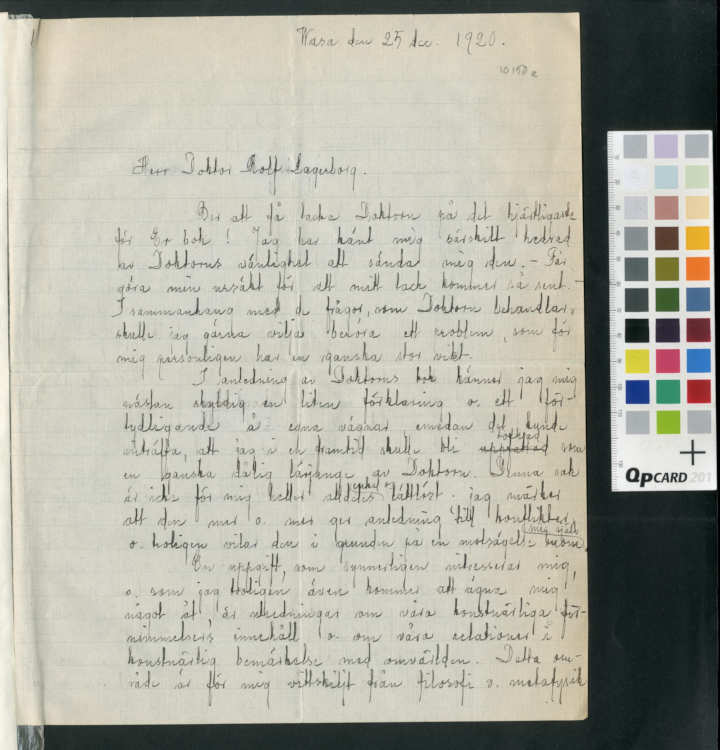 Wasa den 25 dec. 1920.
10150 a
Herr Doktor Rolf Lagerborg.
Ber att få tacka Doktorn på det hjärtligaste
för Er bok! Jag har känt mig särskilt hedrad
av Doktorns vänlighet att sända mig den. – Får
göra min ursäkt för att mitt tack kommer så sent. –
I sammanhang med de frågor, som Doktorn behandlar,
skulle jag gärna vilja beröra ett problem, som för
mig personligen har en ganska stor vikt.
I anledning av Doktorns bok känner jag mig
nästan skyldig en liten förklaring o. ett för-
tydligande å egna vägnar, emedan det kunde
inträffa, att jag i en framtid skulle bli uppfattad vara
en ganska dålig lärjunge av Doktorn. Denna sak
är icke för mig heller alldeles enkel o. lättlöst. jag märker
att den mer o. mer ger anledning till konflikter
o. troligen vilar den i grunden på en motsägelse inom
mig själv.
En uppgift, som synnerligen intresserar mig,
o. som jag troligen även kommer att ägna mig
något åt, är utredningar om våra konstnärliga för-
nimmelsers innehåll o. om våra relationer i
konstnärlig bemärkelse med omvärlden. Detta om-
råde är för mig vittskilt från filosofi o. metafysik
QPCARD 201